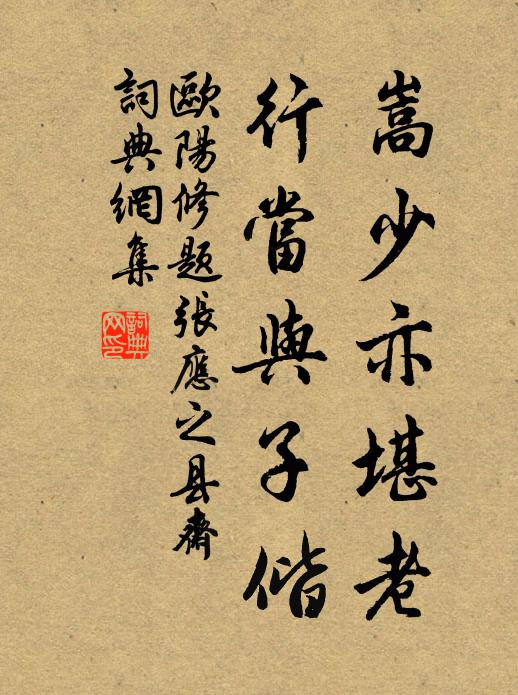 嵩少亦堪老
行當與子偕
歐陽修题張應之县齋
詞典網集
詞典网印